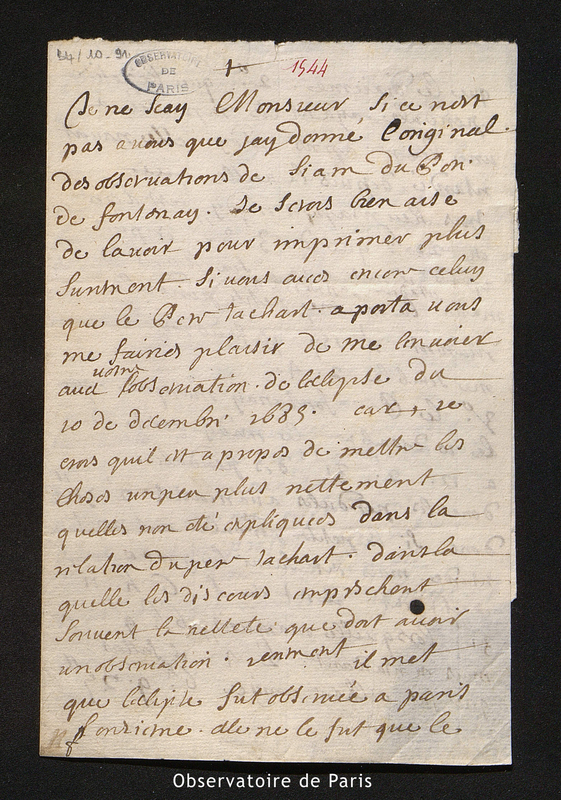 54/10-91
OBSERVATOIRE
DE
PARIS
1544
Je ne scay Monsieur si ce n'est
pas a vous que jay donné l'original
des observations de Siam du Per
de fontenay. Je serois bien aise
de lavoir pour imprimer plus
surement. Si vous aves encore celuy
que le Pere tachart aporta vous
me fairies plaisir de me lenvoier
avec vottre l'observation de leclipse du
10 de decembre 1685. car, ie
crois quil est a propos de mettre les
choses un peu plus nettement
quelles non eté expliquees dans la
relation du pere tachart. dans la
quelle les discours empeschent
souvent la netteté que doit avoir
un observation. il met
que leclipse fut observée a paris
l'onzieme. elle ne le fut que le
Observatoire de Paris